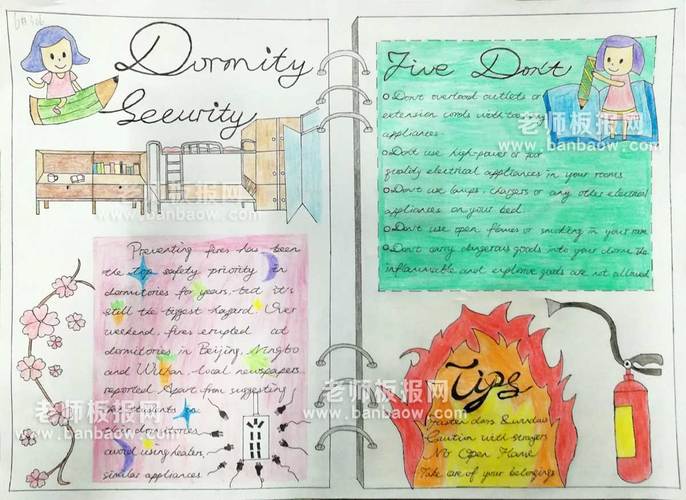 Dormity
Security
Preventing fires has been
the top safety priority in
dormitories for years, but it's
still the biggest hazard. Over
weekend, fires erupted at
dormitories in Beijing, Ningbo
and Wuhan, local newspapers
reported. Apart from suggesting
students to
their dormitories
avoid using heater,
similar appliances
Five Don't
Don't overload outlets or
extension cords with too many
appliances
Don't use high-power or poor
quality electrical appliances in your rooms
Don't use lamps, chargers or any other electrical
appliances on your bed.
Don't use open flames or smoking in your room
Don't carry dangerous goods into your dorm. The
inflammable and explosive goods are not allowed
Tips
Fasten door & window
Caution with strangers
No Open Flame
Take care of your belongings
老师板报网
www.banbaow.com
老师板报网
www.banbaow.com
老师板报网
www.banbaow.com
老师板报网
www.banbaow.com